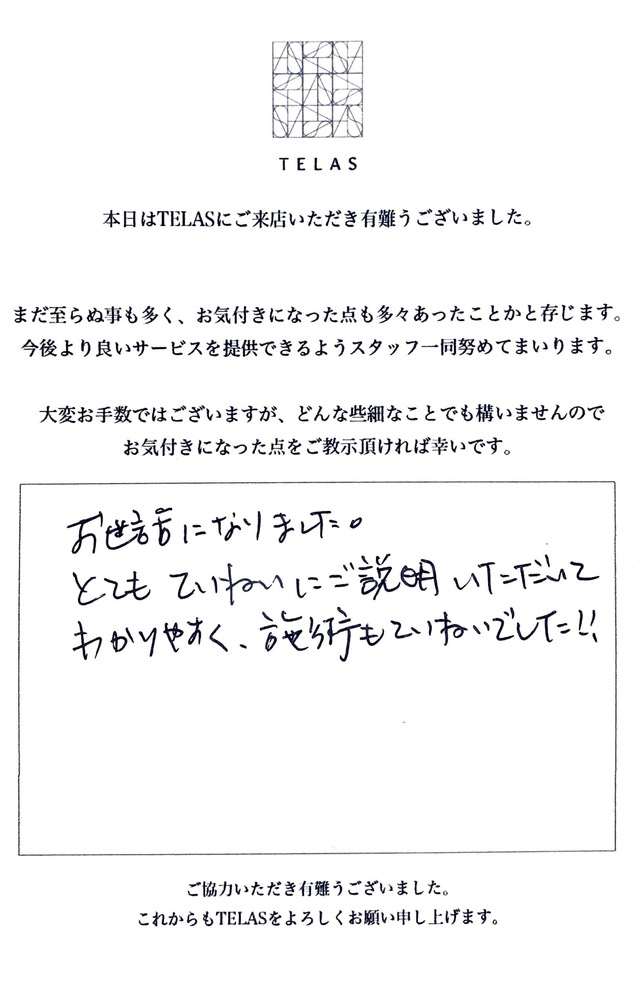 TELAS
本日はTELASにご来店いただき有難うございました。
まだ至らぬ事も多く、お気付きになった点も多々あったことかと存じます。
今後より良いサービスを提供できるようスタッフ一同努めてまいります。
大変お手数ではございますが、どんな些細なことでも構いませんので
お気付きになった点をご教示頂ければ幸いです。
お世話になりました。
とても ていねいにご説明いただいて
わかりやすく、施術もていねいでした!!
ご協力いただき有難うございました。
これからもTELASをよろしくお願い申し上げます。